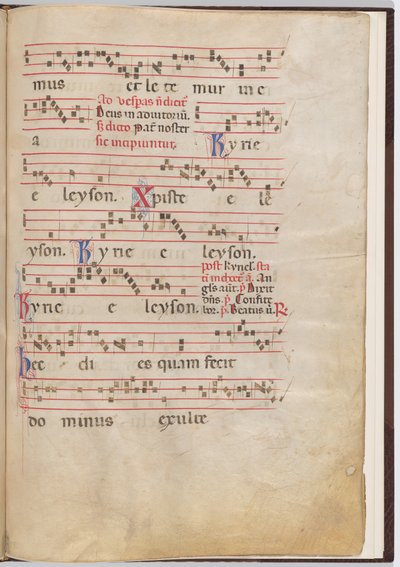 mus et le te mur in e
Ad vespas n̄ dicit̄
Deus in adiutoriū.
s; dicto pat̄ noster
a sic incipiuntur. Kyrie
e leyson. Xpiste e le
yson. Kyrie e leyson.
post Kyriel. sta
ti indxet̄ a. An
gls aūt. p̄. Dixit
dn̄s. p̄. Confite
Kyrie e leyson. bor. p̄. Beatus ū. R.
hec di es quam fecit
do minus exulte